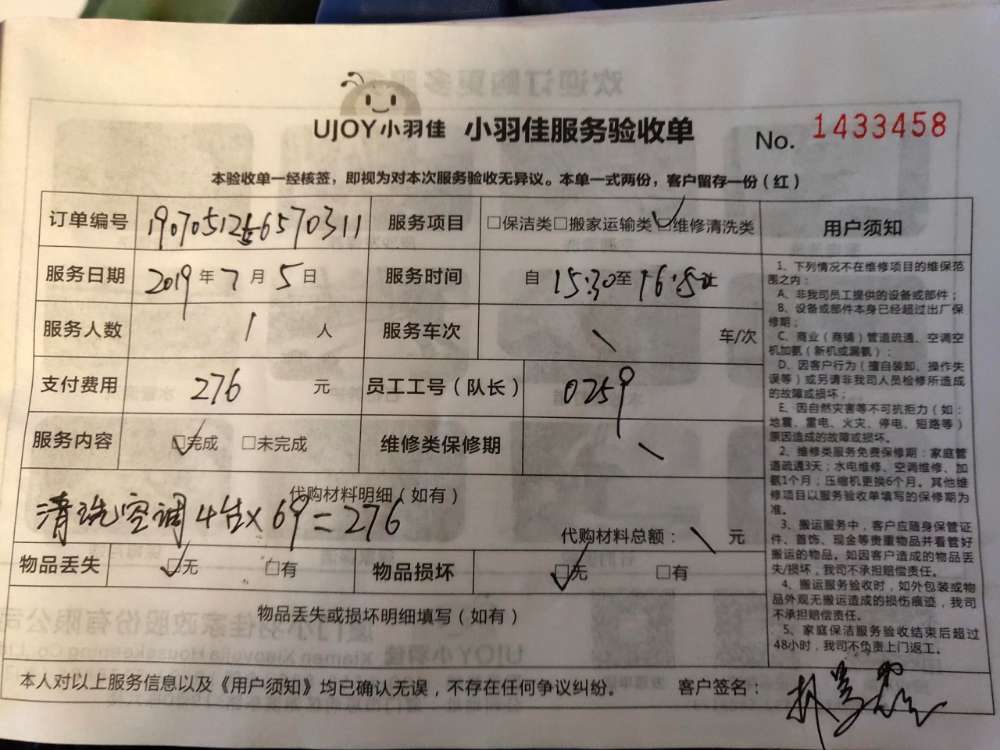 UJOY小羽佳 小羽佳服务验收单 No. 1433458
本验收单一经核签，即视为对本次服务验收无异议。本单一式两份，客户留存一份（红）
订单编号 服务项目 □保洁类□搬家运输类□维修清洗类
服务日期 2019年7月5日 服务时间 自 15:30至
服务人数 1 人 服务车次 \ 车/次
支付费用 276 元 员工工号（队长） 0259
服务内容 □完成 □未完成 维修类保修期 \
代购材料明细（如有）
清洗空调4台×69=276
代购材料总额： \ 元
物品丢失 □无 □有 物品损坏 □无 □有
物品丢失或损坏明细填写（如有）
用户须知
1、下列情况不在维修项目的维保范
围之内：
A、非我司员工提供的设备或部件；
B、设备或部件本身已经超过出厂保
修期；
C、商业（商铺）管道疏通、空调空
机加氨（新机或漏氨）；
D、因客户行为（擅自装卸、操作失
误等）或另请非我司人员检修所造成
的故障或损坏；
E、因自然灾害等不可抗拒力（如：
地震、雷电、火灾、停电、短路等）
原因造成的故障或损坏。
2、维修类服务免费保修期：家庭管
道疏通3天；水电维修、空调维修、加
氨1个月；压缩机更换6个月。其他维
修项目以服务验收单填写的保修期为
准。
3、搬运服务中，客户应随身保管证
件、首饰、现金等贵重物品并看管好
搬运的物品。如因客户造成的物品丢
失/损坏，我司不承担赔偿责任。
4、搬运服务验收时，如外包装或物
品外观无搬运造成的损伤痕迹，我司
不承担赔偿责任。
5、家庭保洁服务验收结束后超过
48小时，我司不负责上门返工。
本人对以上服务信息以及《用户须知》均已确认无误，不存在任何争议纠纷。 客户签名：